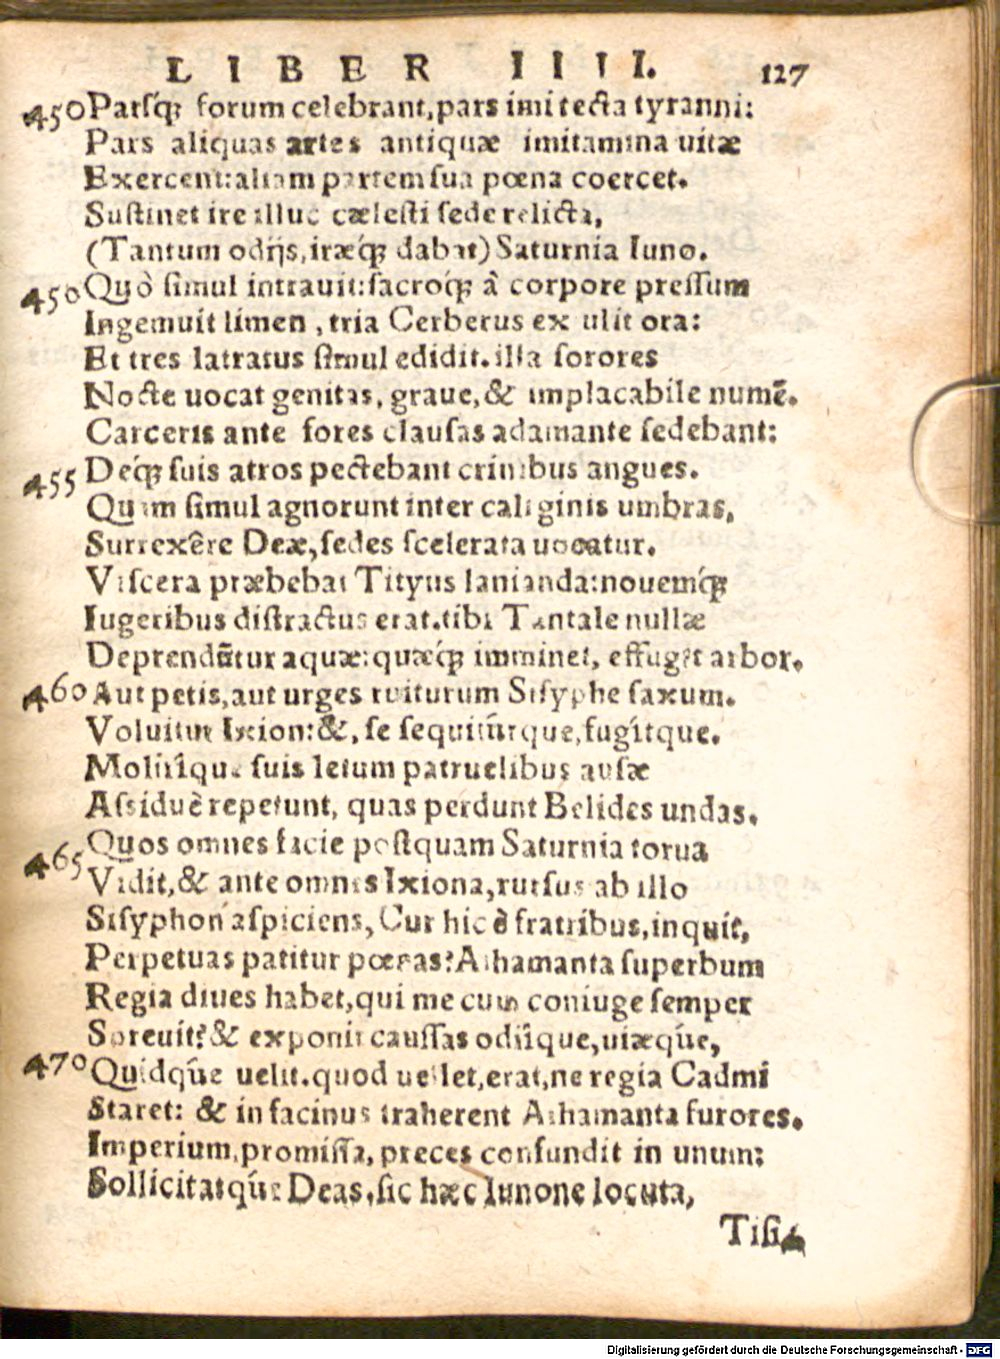 LIBER IIII. 127
450 Parsq́; forum celebrant, pars imi tecta tyranni:
Pars aliquas artes antiquæ imitamina uitæ
Exercent: aliam partem sua pœna coercet.
Sustinet ire illuc cælesti sede relicta,
(Tantum odijs, iræq́; dabat) Saturnia Iuno.
450 Quò simul intrauit: sacroq́; à corpore pressum
Ingemuit limen, tria Cerberus ex ulit ora:
Et tres latratus simul edidit. illa sorores
Nocte uocat genitas, graue, & implacabile numē.
Carceris ante fores clausas adamante sedebant:
455 Deq́; suis atros pectebant crinibus angues.
Quam simul agnorunt inter caliginis umbras,
Surrexêre Deæ, sedes scelerata uocatur.
Viscera præbebat Tityus lanianda: nouemq́;
Iugeribus distractus erat. tibi Tantale nullæ
Deprendūtur aquæ: quæq́; imminet, effugit arbor.
460 Aut petis, aut urges ruiturum Sisyphe saxum.
Voluitur Ixion: &, se sequitúrque, fugítque.
Molirîque suis letum patruelibus ausæ
Assiduè repetunt, quas perdunt Belides undas.
Quos omnes facie postquam Saturnia torua
465 Vidit, & ante omnes Ixiona, rursus ab illo
Sisyphon aspiciens, Cur hic è fratribus, inquit,
Perpetuas patitur pœnas? Athamanta superbum
Regia diues habet, qui me cum coniuge semper
Spreuit? & exponit caussas odiîque, uiæqúe,
470 Quidqúe uelit. quod uellet, erat, ne regia Cadmi
Staret: & in facinus traherent Athamanta furores.
Imperium, promissa, preces confundit in unum:
Sollicitatqúe Deas, sic hæc Iunone locuta,
Tisi
Digitalisierung gefördert durch die Deutsche Forschungsgemeinschaft - DFG